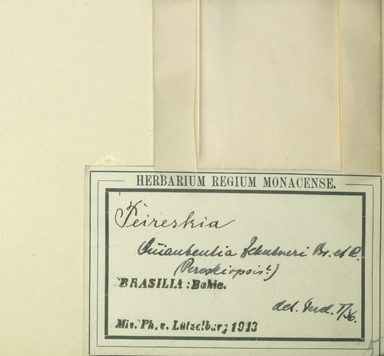 HERBARIUM REGIUM MONACENSE.
Peireskia
Quiabentia Zehntneri Br. et R.
(Pereskiopsis?)
BRASILIA: Bahia.
det.
Mis. Ph. v. Lützelburg 1913